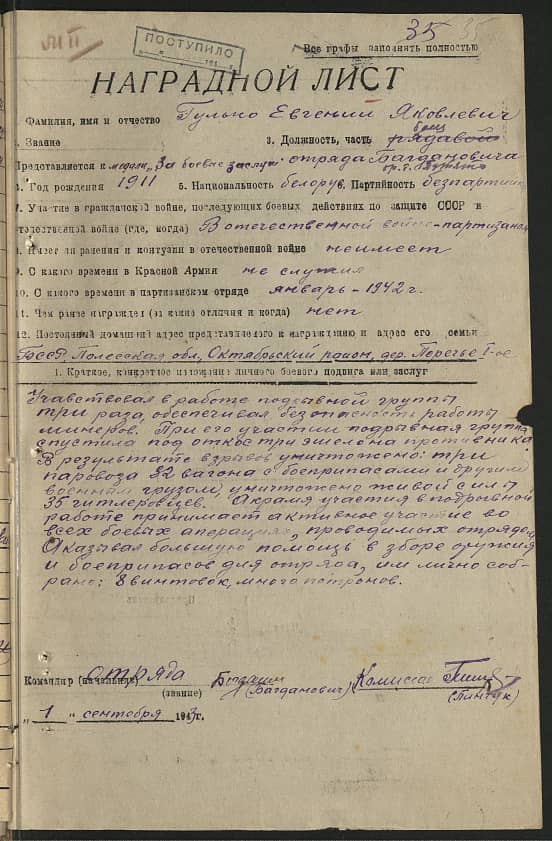 ЛП
ПОСТУПИЛО
35 35
Все графы заполнять полностью
НАГРАДНОЙ ЛИСТ
Фамилия, имя и отчество Гулько Евгений Яковлевич
боец
2. Звание 3. Должность, часть рядавой
Представляется к медали "За боевые заслуги" отряда Багдановича
4. Год рождения 1911 5. Национальность белорус 6. Партийность безпартийн
7. Участие в гражданской войне, последующих боевых действиях по защите СССР и
отечественной войне (где, когда) В отечественной войне-партизаном
8. Имеет ли ранения и контузии в отечественной войне неимеет
9. С какого времени в Красной Армии не служил
10. С какого времени в партизанском отряде январь-1942г.
11. Чем ранее награжден (за какие отличия и когда) нет
12. Постоянный домашний адрес представляемого к награждению и адрес его семьи
БССР, Полесская обл, Октябрьский район, дер. Поречье I-ое
1. Краткое, конкретное изложение личного боевого подвига или заслуг
Учавствовал в работе подрывной группы
три раза, обеспечивал безопасность работы
минеров. При его участии подрывная группа
спустила под откос три эшелона противника
В результате взрывов уничтожено: три
паровоза 22 вагона с боеприпасами и другим
военным грузом, уничтожено живой силы
35 гитлеровцев. Акрамя участия в подрывной
работе принимает активное участие во
всех боевых аперациях, проводимых отрядом
Аказывал большую помощь в зборе оружия
и боеприпасов для отряда, им лично соб-
рано: 8 винтовок, много потронов.
Командир (начальник) отряда Комиссар
(звание) (Багданович) (Пинчук)
"1" сентября 1943г.